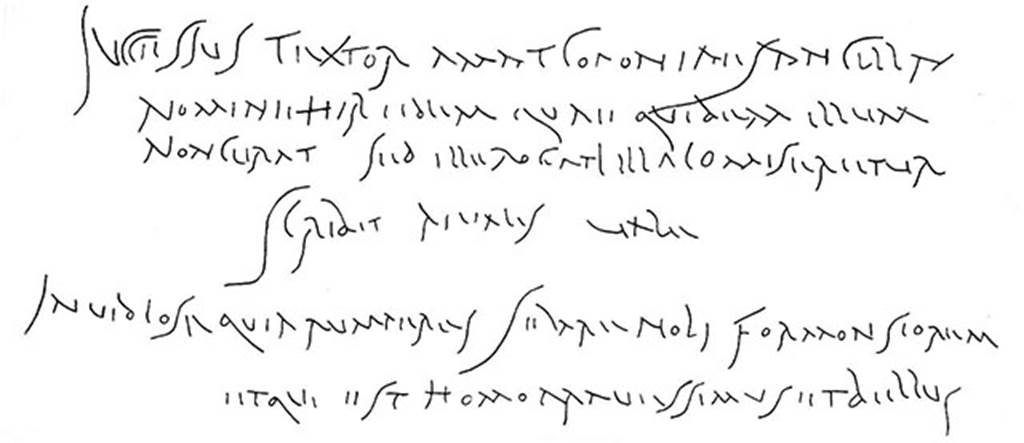 Successus textor amat coponiaes ancilla
nomine Hiredem quae quidem illum
non curat sed ille rogat illa comiseretur
scribit rivalis vale
Invidiose quia rumperis sedare noli formonsiorem
et qui est homo pravessimus et bellus